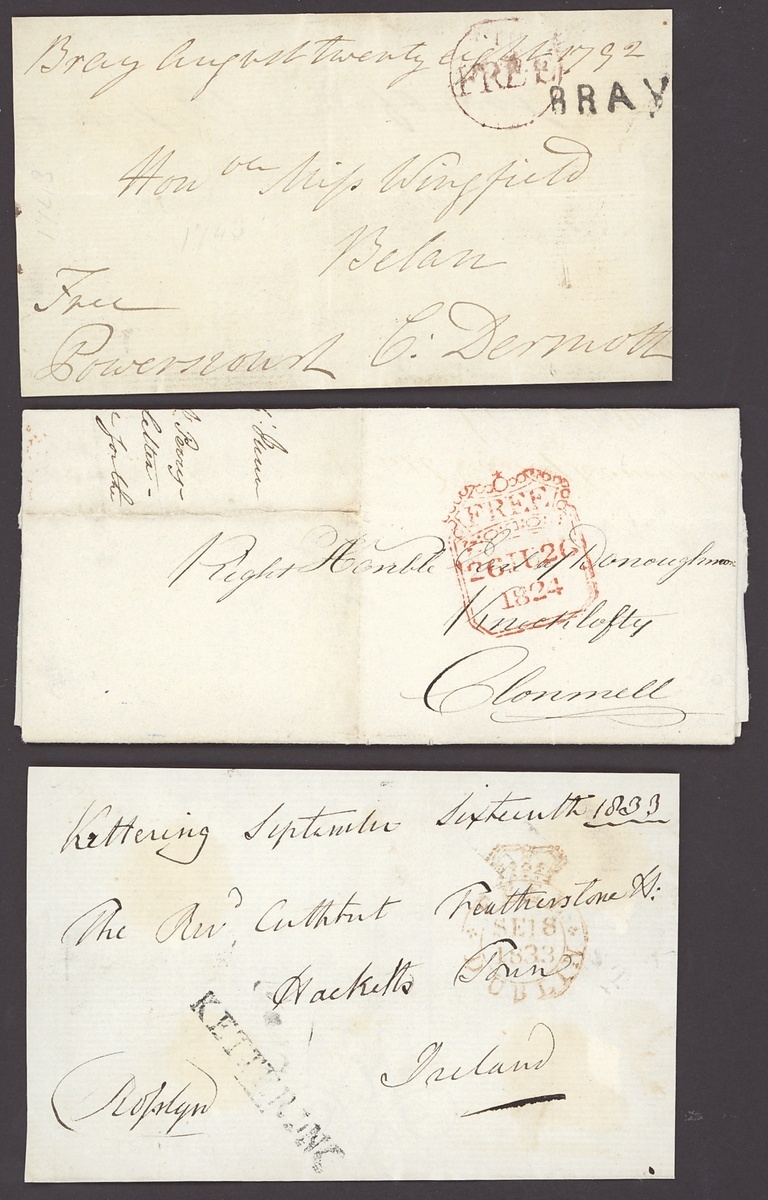 Bray August twenty eight 1792
FREE
BRAY
Honble Miss Wingfield
Belan
Free
Powerscourt C: Dermott
FREE
26 JU 26
1824
Right Honble Donoughmore
Knocklofty
Clonmell
Kettering September Sixteenth 1833
The Revd Cuthbert Featherstone H:
SE 18
1833
DUBLIN
Hacketts Town
KETTERING
Ireland
Rosslyn